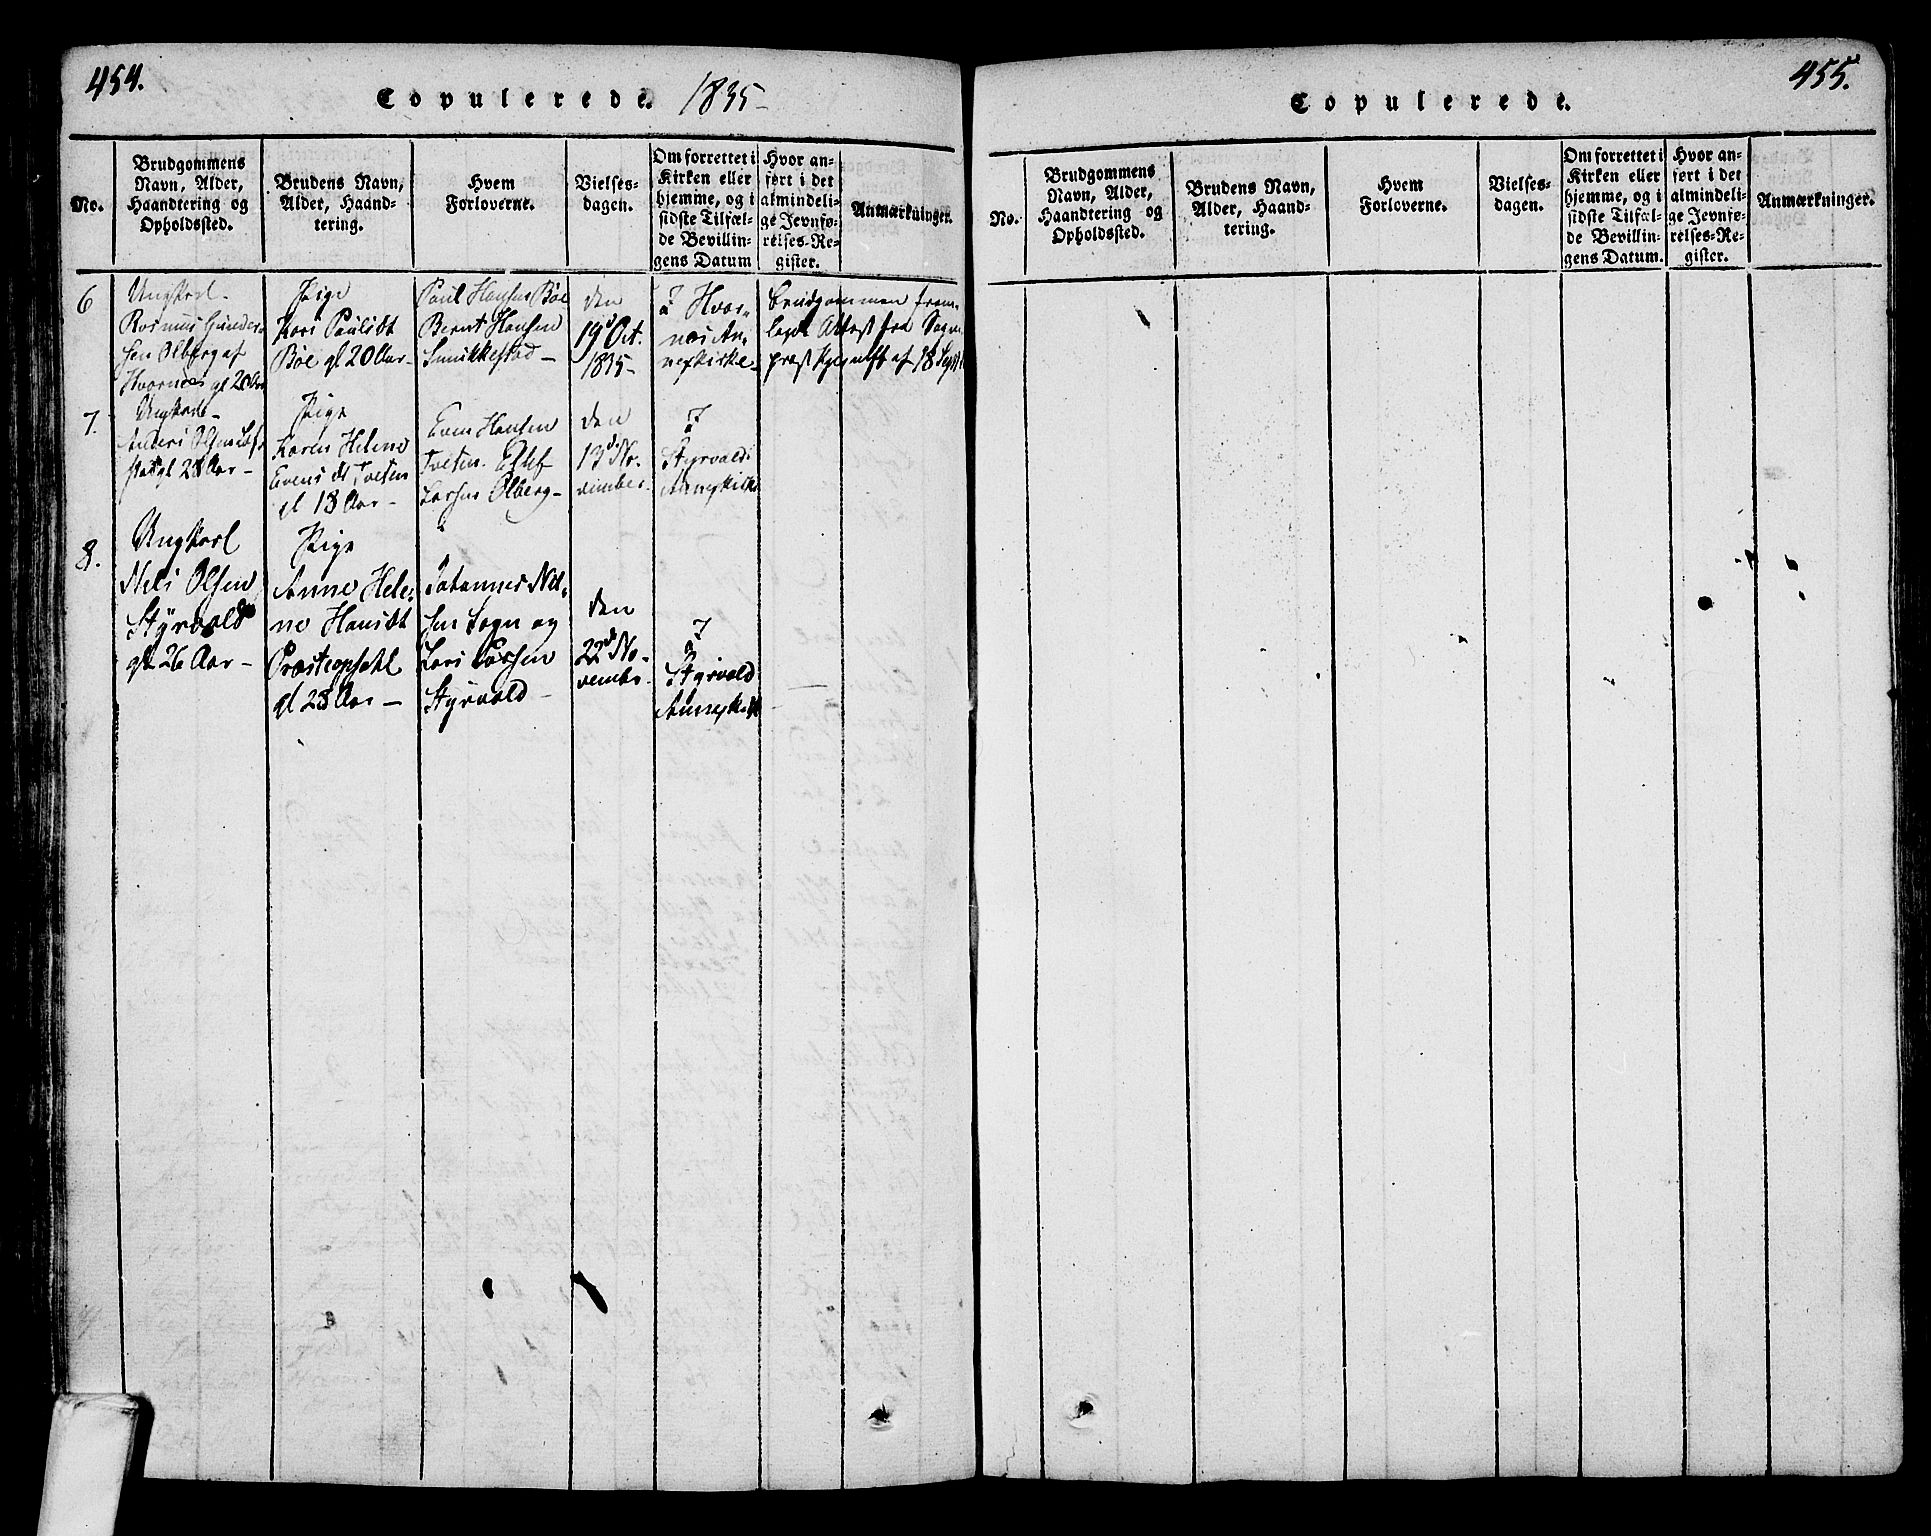 454.
Copulerede. 1835-
No.
Brudgommens
Navn, Alder,
Haandtering og
Opholdssted.
Brudens Navn,
Alder, Haand-
tering.
Hvem
Forloverne.
Vielses-
dagen.
Om forrettet i
Kirken eller
hjemme, og i
sidste Tilfæl-
de Bevillin-
gens Datum
Hvor an-
ført i det
almindeli-
ge Jevnfø-
relses-Re-
gister.
Anmærkninger.
6
Ungkarl-
Rasmus Gunder-
sen Olberg af
Hvarnæs gl 28 Aar
Pige
Kari Paulsdt
Bøe gl 20 Aar-
Paul Hansen Bøe
Bernt Hansen
den
19d Oct.
1835-
I Hvar-
næs An-
nexkirke-
Brudgommen frem-
lagt Attest fra Sogne
præst af 18 Sept
7.
Ungkarl-
gl 28 Aar-
Pige
Karen Helene
Evensdt Tveten
gl 18 Aar-
Even Hansen
Tveten.
Larsen Olberg-
den
13d No-
vember.
I
Styrvold
Annexkirke
8.
Ungkarl
Nels Olsen
Styrvold
gl 26 Aar-
Pige
Anne Hele-
ne Hansdt
Præsteopsahl
gl 28 Aar-
Johannes Nel-
sen Sogn og
Lars Larsen
Styrvold-
den
22d No-
vember.
I
Styrvold
Annexkirke
455.
Copulerede.
No.
Brudgommens
Navn, Alder,
Haandtering og
Opholdssted.
Brudens Navn,
Alder, Haand-
tering.
Hvem
Forloverne.
Vielses-
dagen.
Om forrettet i
Kirken eller
hjemme, og i
sidste Tilfæl-
de Bevillin-
gens Datum.
Hvor an-
ført i det
almindeli-
ge Jevnfø-
relses-Re-
gister.
Anmærkninger.